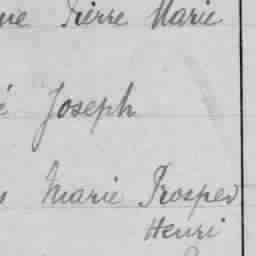 Pierre Marie
Joseph
Marie Prosper
Henri